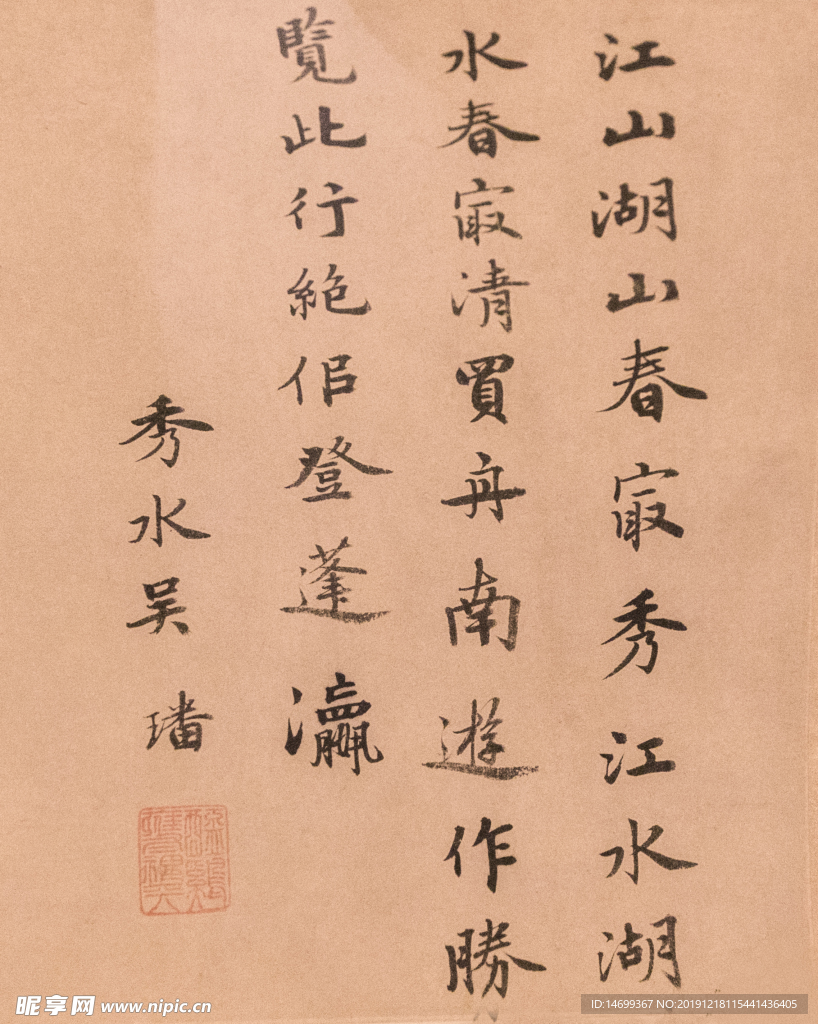 江山湖山春㝡秀江水湖
水春㝡清買舟南遊作勝
覽此行絶佀登蓬瀛
秀水吴璠
昵享网 www.nipic.cn
ID:14699367 NO:20191218115441436405